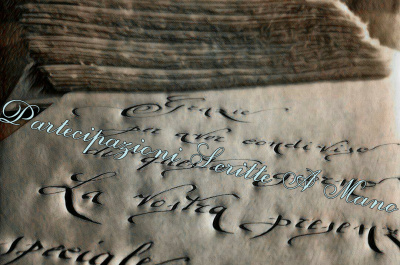 Grazie
per aver condiviso
Partecipazioni Scritte A Mano
La vostra presen
speciale